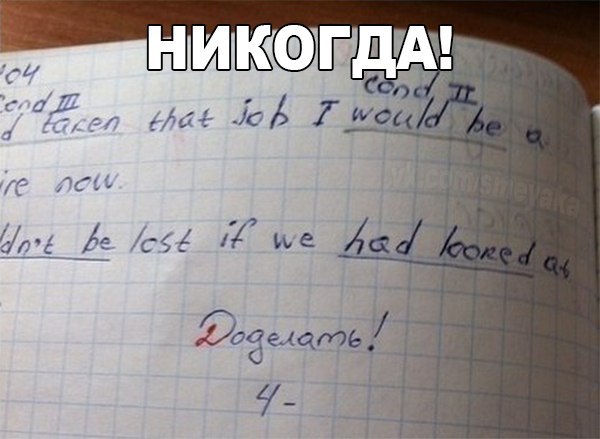 НИКОГДА!
04
Cond III
cond II
d taken that job I would be a
ire now.
ldn't be lost if we had looked at
Доделать!
4-